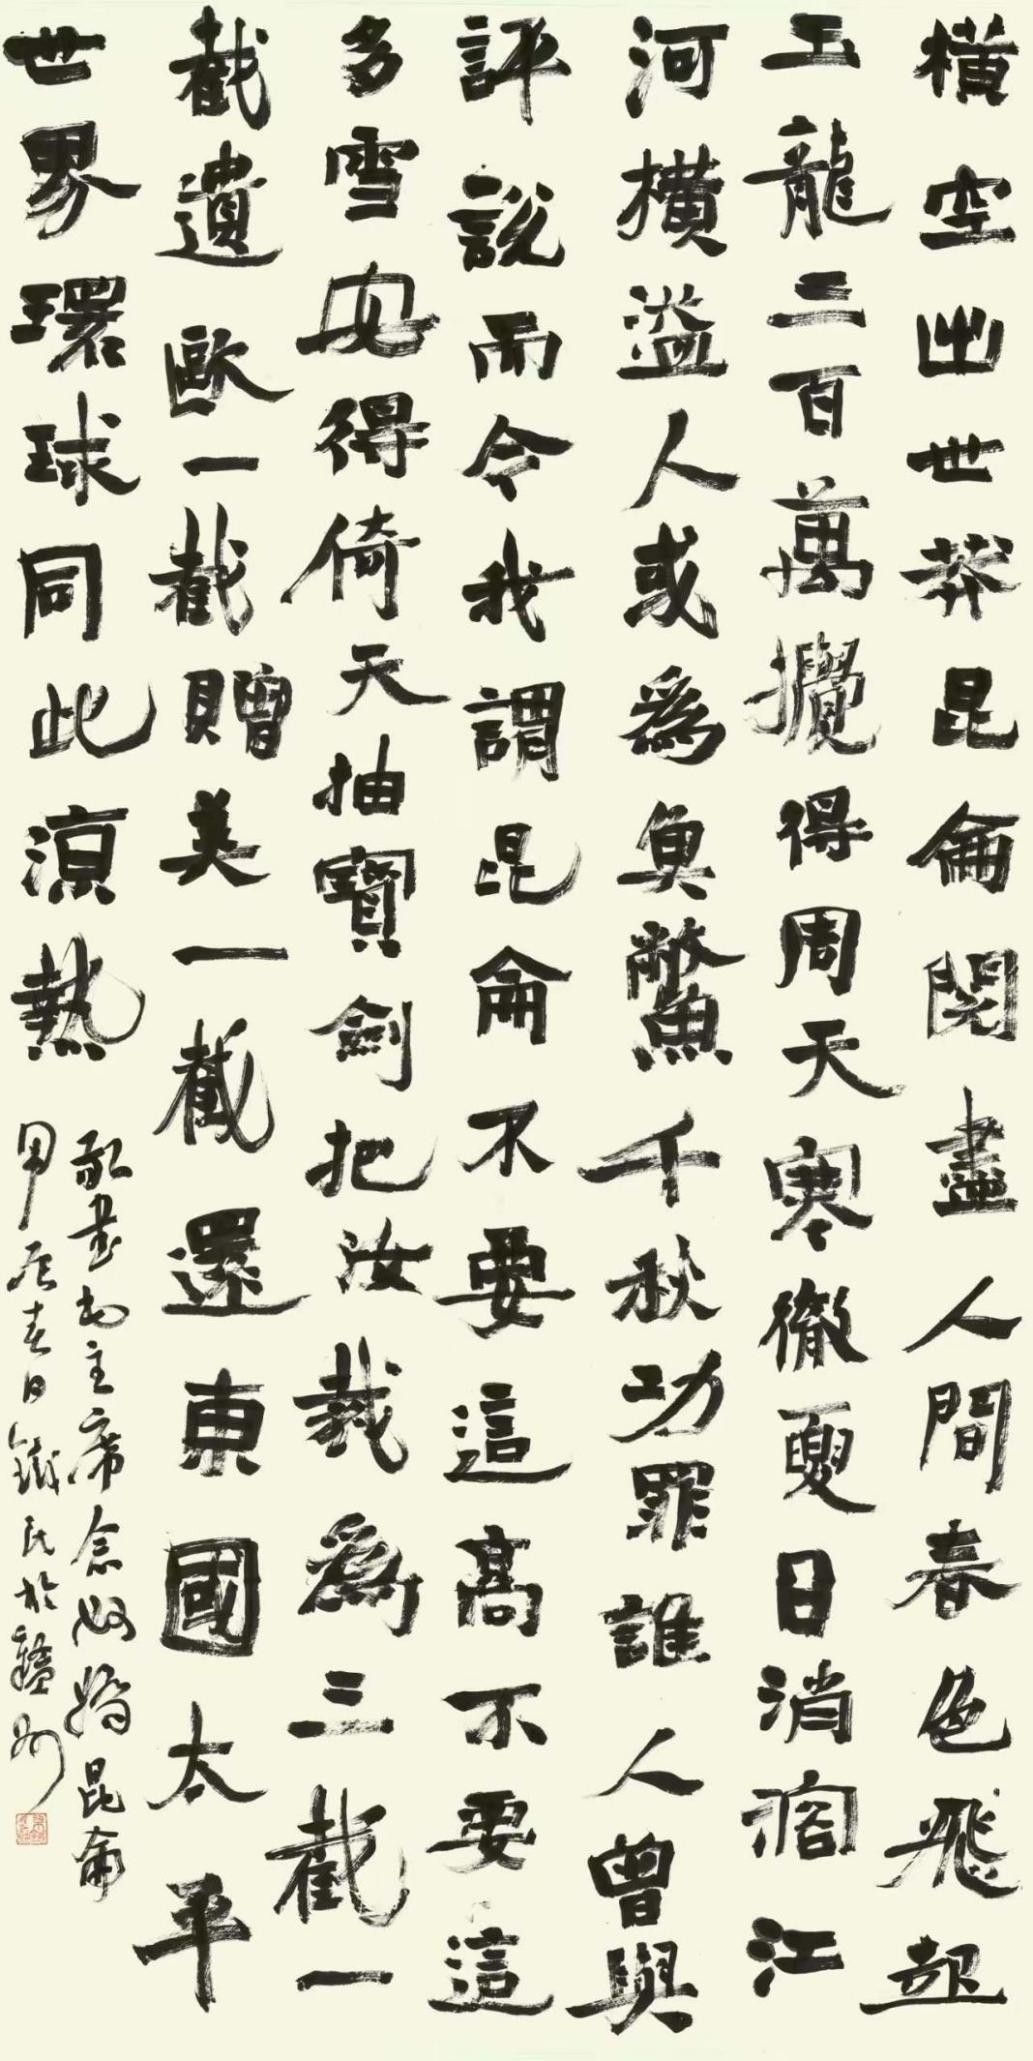 橫空出世莽昆侖閱盡人間春色飛起
玉龍三百萬攪得周天寒徹夏日消溶江
河橫溢人或爲魚鱉千秋功罪誰人曾與
評說而今我謂昆侖不要這高不要這
多雪安得倚天抽寶劍把汝裁爲三截一
截遺歐一截贈美一截還東國太平
世界環球同此涼熱
敬書毛主席念奴嬌昆侖
甲辰春日鐵民於贛州